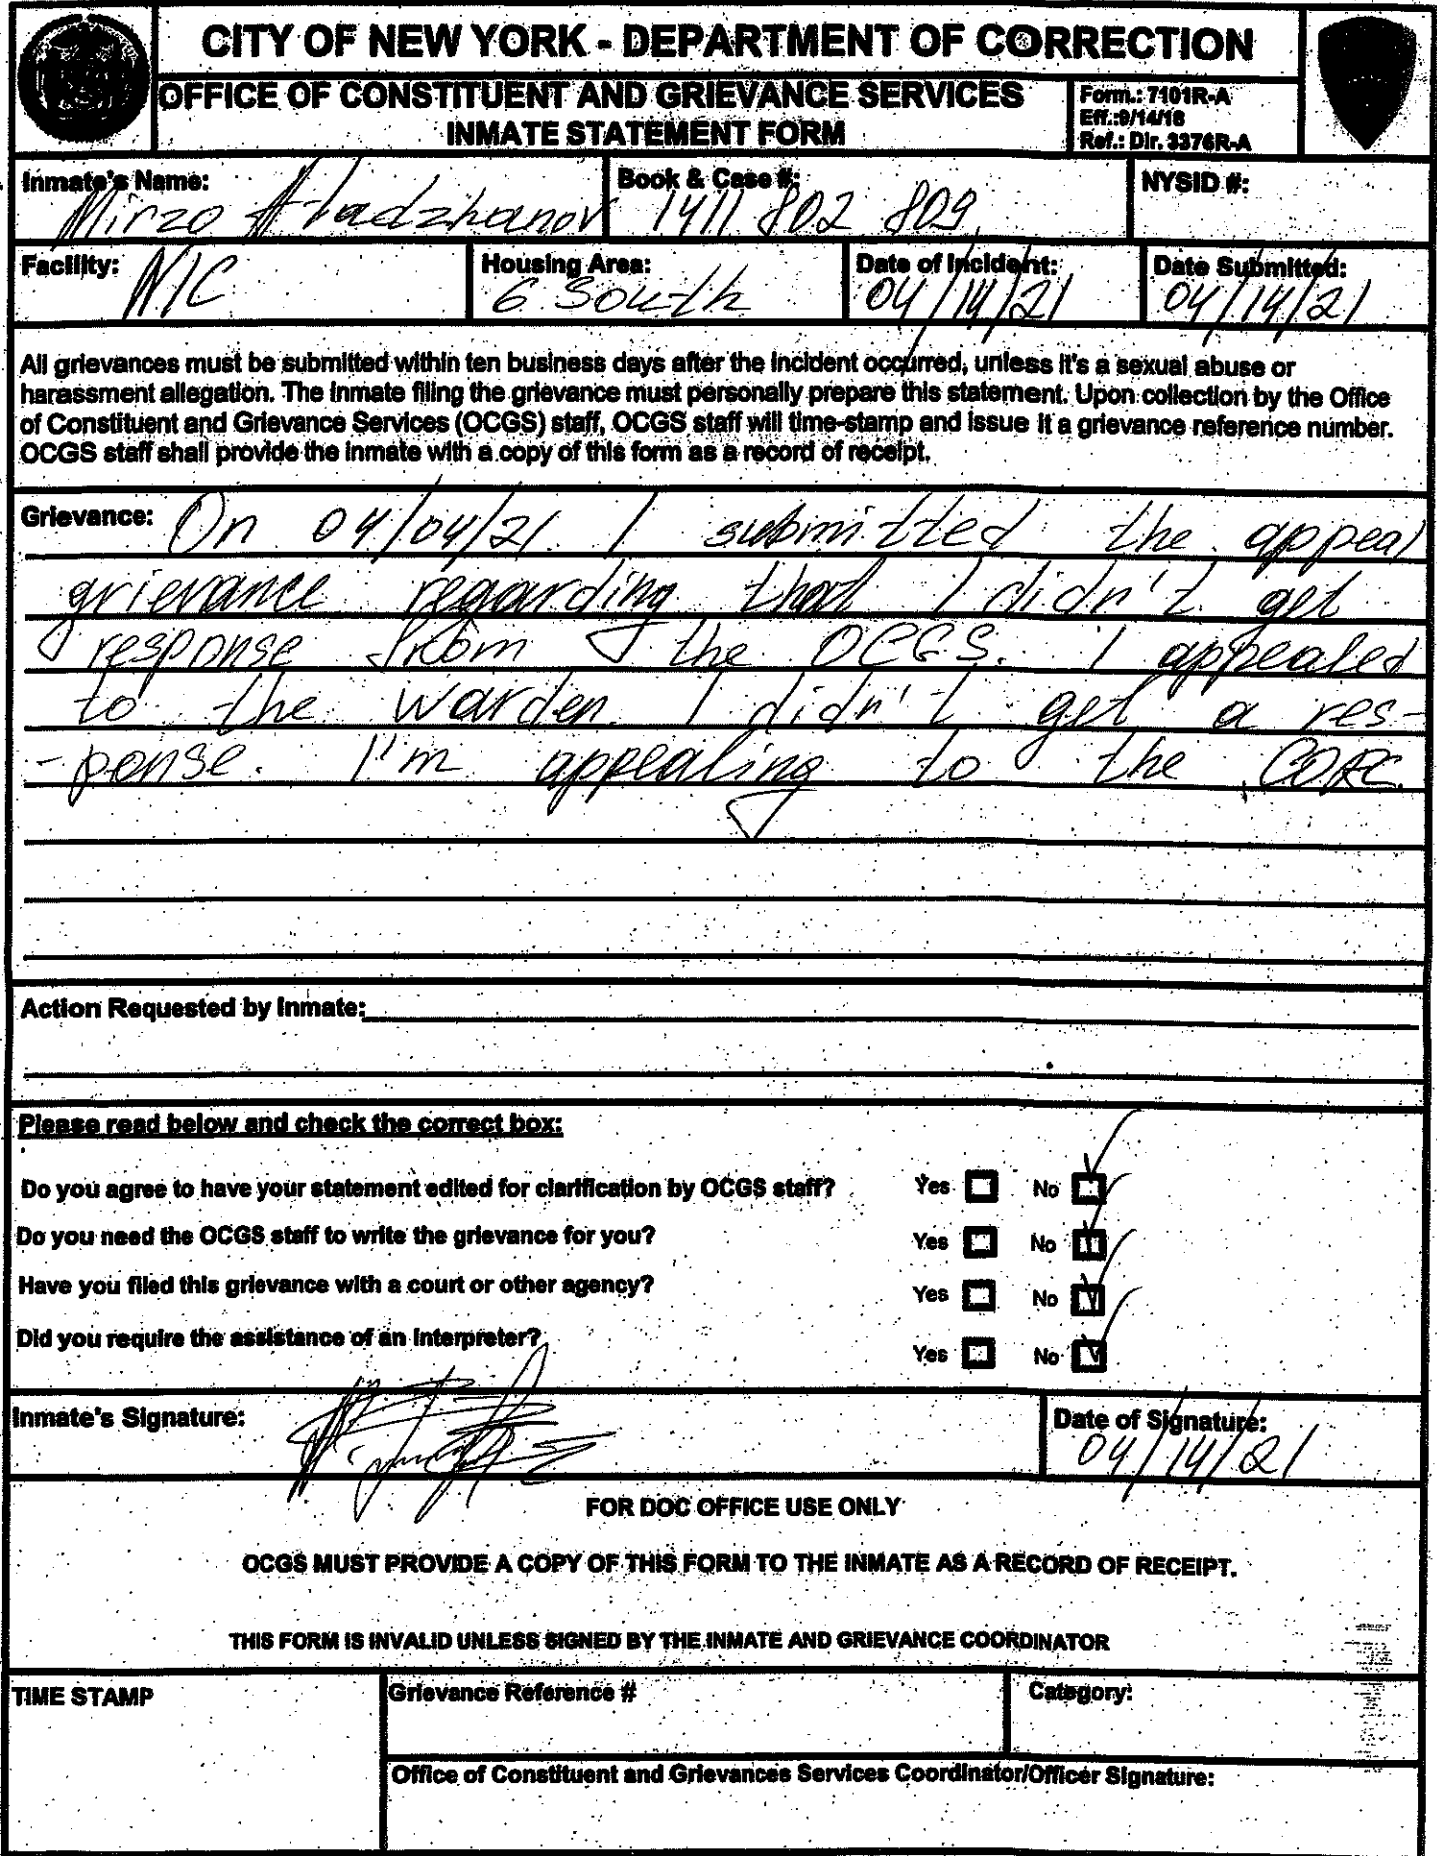 CITY OF NEW YORK - DEPARTMENT OF CORRECTION
OFFICE OF CONSTITUENT AND GRIEVANCE SERVICES
INMATE STATEMENT FORM
Form.: 7101R-A
Eff.:9/14/18
Ref.: Dir. 3376R-A
Inmate's Name:
Mirzo Atadzhanov
Book & Case #:
1411 802 809
NYSID #:
Facility:
NIC
Housing Area:
6 South
Date of Incident:
04/14/21
Date Submitted:
04/14/21
All grievances must be submitted within ten business days after the incident occurred, unless it's a sexual abuse or
harassment allegation. The inmate filing the grievance must personally prepare this statement. Upon collection by the Office
of Constituent and Grievance Services (OCGS) staff, OCGS staff will time-stamp and issue it a grievance reference number.
OCGS staff shall provide the inmate with a copy of this form as a record of receipt.
Grievance: On 04/04/21. I submitted the appeal
grievance regarding that I didn't get
response from the OCGS. I appealed
to the warden. I didn't get a res-
-ponse. I'm appealing to the CORC.
Action Requested by Inmate:
Please read below and check the correct box:
Do you agree to have your statement edited for clarification by OCGS staff? Yes No
Do you need the OCGS staff to write the grievance for you? Yes No
Have you filed this grievance with a court or other agency? Yes No
Did you require the assistance of an interpreter? Yes No
Inmate's Signature:
Date of Signature:
04/14/21
FOR DOC OFFICE USE ONLY
OCGS MUST PROVIDE A COPY OF THIS FORM TO THE INMATE AS A RECORD OF RECEIPT.
THIS FORM IS INVALID UNLESS SIGNED BY THE INMATE AND GRIEVANCE COORDINATOR
TIME STAMP
Grievance Reference #
Category:
Office of Constituent and Grievances Services Coordinator/Officer Signature: